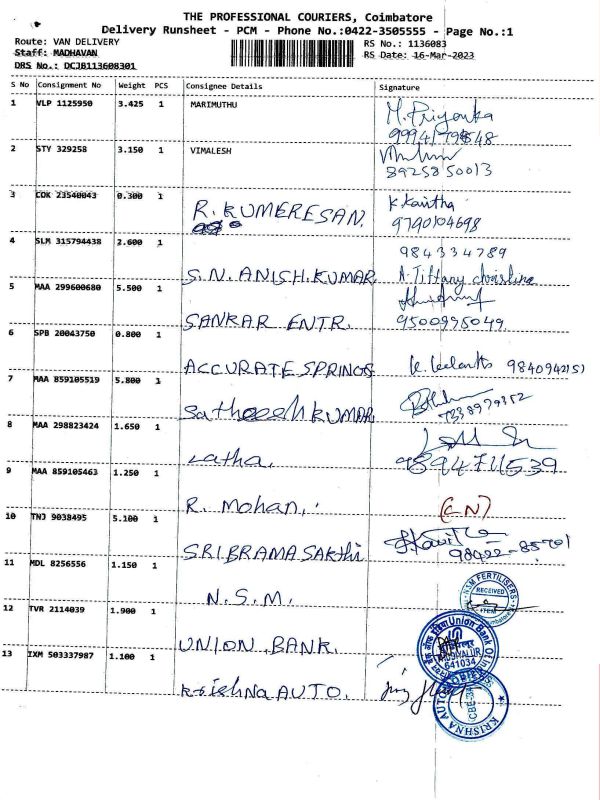 THE PROFESSIONAL COURIERS, Coimbatore
Delivery Runsheet - PCM - Phone No.:0422-3505555 - Page No.:1
Route: VAN DELIVERY RS No.: 1136083
Staff: MADHAVAN RS Date: 16-Mar-2023
DRS No.: DCJB113608301
S No Consignment No Weight PCS Consignee Details Signature
1 VLP 1125950 3.425 1 MARIMUTHU M. Priyanka
9994179848
2 STY 329258 3.150 1 VIMALESH
8925850013
3 COK 23540043 0.300 1 K. Kavitha
R. KUMERESAN 9790104698
4 SLM 315794438 2.600 1 984334789
S.N. ANISH.KUMAR A. Tiffany christina
5 MAA 299600680 5.500 1
SANKAR ENTR. 9500975049
6 SPB 20043750 0.800 1
ACCURATE SPRINGS 9840942151
7 MAA 859105519 5.800 1
SatheeshKUMAR
8 MAA 298823424 1.650 1
Latha. 9894711539
9 MAA 859105463 1.250 1
R. Mohan. (CN)
10 TNJ 9038495 5.100 1
SRI BRAMA SAKthi
11 MDL 8256556 1.150 1 NSM FERTILISERS
N.S.M. RECEIVED
12 TVR 2114039 1.900 1
UNION BANK. Union Bank Of India
641034
13 IXM 503337987 1.100 1
Krishna AUTO. KRISHNA AUTO
CBE